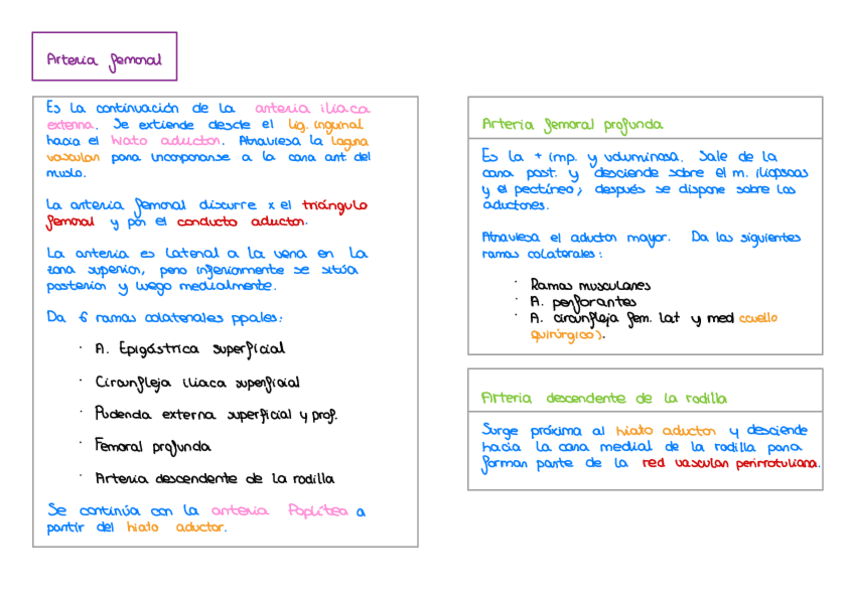 Arteria femoral
Es la continuación de la arteria iliaca
externa. Se extiende desde el lig. inguinal
hacia el hiato aductor. Atraviesa la laguna
vascular para incorporarse a la cara ant del
muslo.
La arteria femoral discurre x el triángulo
femoral y por el conducto aductor.
La arteria es lateral a la vena en la
zona superior, pero inferiormente se sitúa
posterior y luego medialmente.
Da 6 ramas colaterales ppales:
· A. Epigástrica superficial
· Circunfleja iliaca superficial
· Pudenda externa superficial y prof.
· Femoral profunda
· Arteria descendente de la rodilla
Se continúa con la arteria Poplítea a
partir del hiato aductor.
Arteria femoral profunda
Es la + imp. y voluminosa. Sale de la
cara post. y desciende sobre el m. iliopsoas
y el pectíneo; después se dispone sobre los
aductores.
Atraviesa el aductor mayor. Da las siguientes
ramas colaterales:
· Ramas musculares
· A. perforantes
· A. circunfleja fem. lat y med (cuello
quirúrgico).
Arteria descendente de la rodilla
Surge próxima al hiato aductor y desciende
hacia la cara medial de la rodilla para
formar parte de la red vascular perirrotuliana.